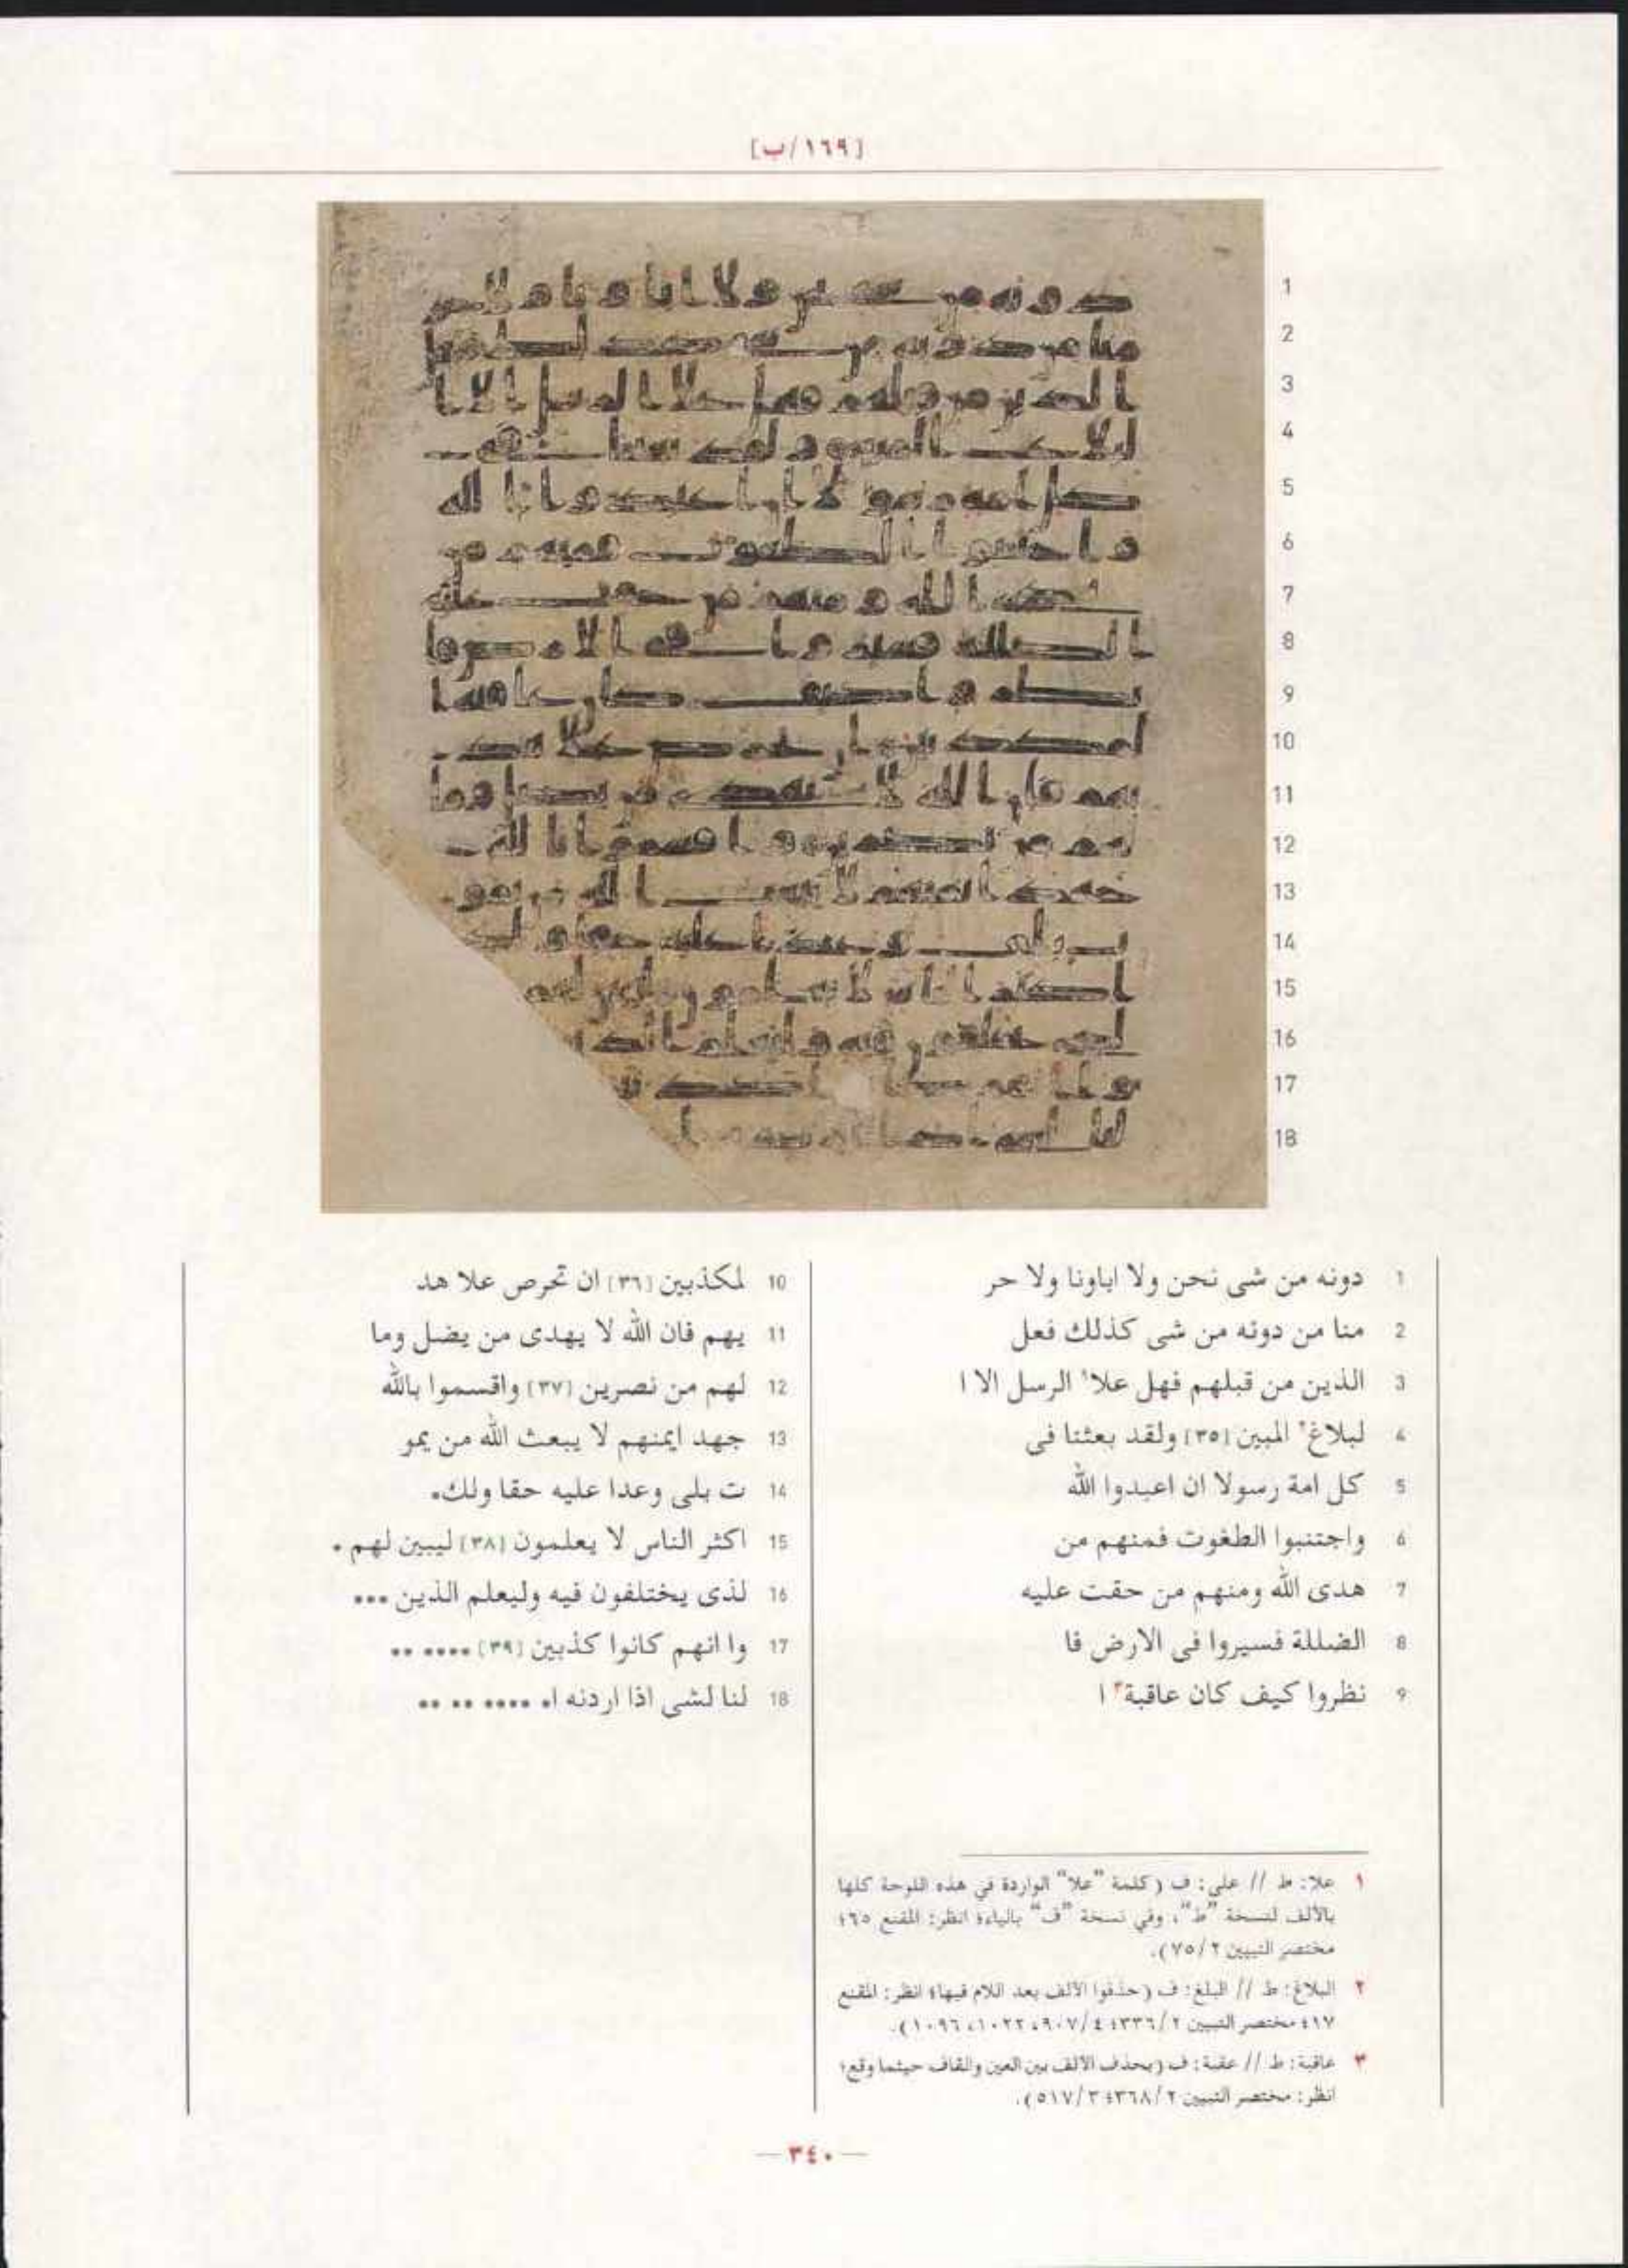 [١٦٩/ب]
1
2
3
4
5
6
7
8
9
10
11
12
13
14
15
16
17
18
1 دونه من شى نحن ولا اباونا ولا حر
2 منا من دونه من شى كذلك فعل
3 الذين من قبلهم فهل علا١ الرسل الا ا
4 لبلاغ٢ المبين [٣٥] ولقد بعثنا فى
5 كل امة رسولا ان اعبدوا الله
6 واجتنبوا الطغوت فمنهم من
7 هدى الله ومنهم من حقت عليه
8 الضللة فسيروا فى الارض فا
9 نظروا كيف كان عاقبة٣ ا
10 لمكذبين [٣٦] ان تحرص علا هد
11 يهم فان الله لا يهدى من يضل وما
12 لهم من نصرين [٣٧] واقسموا بالله
13 جهد ايمنهم لا يبعث الله من يمو
14 ت بلى وعدا عليه حقا ولك•
15 اكثر الناس لا يعلمون [٣٨] ليبين لهم •
16 لذى يختلفون فيه وليعلم الذين •••
17 وا انهم كانوا كذبين [٣٩] •••• ••
18 لنا لشى اذا اردنه ا• •••• •• ••
١ علا: ط // على: ف (كلمة "علا" الواردة في هذه اللوحة كلها
بالألف لنسخة "ط"، وفي نسخة "ف" بالياء؛ انظر: المقنع ٦٥؛
مختصر التبيين ٢/٧٥).
٢ البلاغ: ط // البلغ: ف (حذفوا الألف بعد اللام فيها؛ انظر: المقنع
١٧؛ مختصر التبيين ٢/٣٣٦؛ ٤/٩٠٧، ١٠٢٢، ١٠٩٦).
٣ عاقبة: ط // عقبة: ف (بحذف الألف بين العين والقاف حيثما وقع؛
انظر: مختصر التبيين ٢/٣٦٨؛ ٣/٥١٧).
— ٣٤٠ —